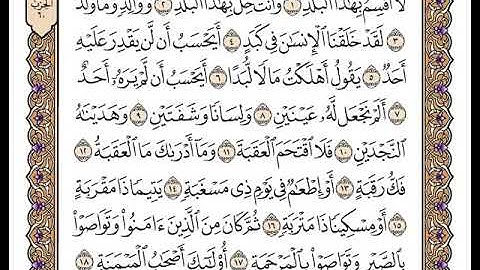 لَآ أُقْسِمُ بِهَٰذَا ٱلْبَلَدِ ١ وَأَنتَ حِلٌّۢ بِهَٰذَا ٱلْبَلَدِ ٢ وَوَالِدٍ وَمَا وَلَدَ
٣ لَقَدْ خَلَقْنَا ٱلْإِنسَٰنَ فِى كَبَدٍ ٤ أَيَحْسَبُ أَن لَّن يَقْدِرَ عَلَيْهِ
أَحَدٌ ٥ يَقُولُ أَهْلَكْتُ مَالًا لُّبَدًا ٦ أَيَحْسَبُ أَن لَّمْ يَرَهُۥٓ أَحَدٌ
٧ أَلَمْ نَجْعَل لَّهُۥ عَيْنَيْنِ ٨ وَلِسَانًا وَشَفَتَيْنِ ٩ وَهَدَيْنَٰهُ
ٱلنَّجْدَيْنِ ١٠ فَلَا ٱقْتَحَمَ ٱلْعَقَبَةَ ١١ وَمَآ أَدْرَىٰكَ مَا ٱلْعَقَبَةُ ١٢
فَكُّ رَقَبَةٍ ١٣ أَوْ إِطْعَٰمٌ فِى يَوْمٍ ذِى مَسْغَبَةٍ ١٤ يَتِيمًا ذَا مَقْرَبَةٍ
١٥ أَوْ مِسْكِينًا ذَا مَتْرَبَةٍ ١٦ ثُمَّ كَانَ مِنَ ٱلَّذِينَ ءَامَنُوا۟ وَتَوَاصَوْا۟
بِٱلصَّبْرِ وَتَوَاصَوْا۟ بِٱلْمَرْحَمَةِ ١٧ أُو۟لَٰٓئِكَ أَصْحَٰبُ ٱلْمَيْمَنَةِ ١٨
الحزب
٦٠